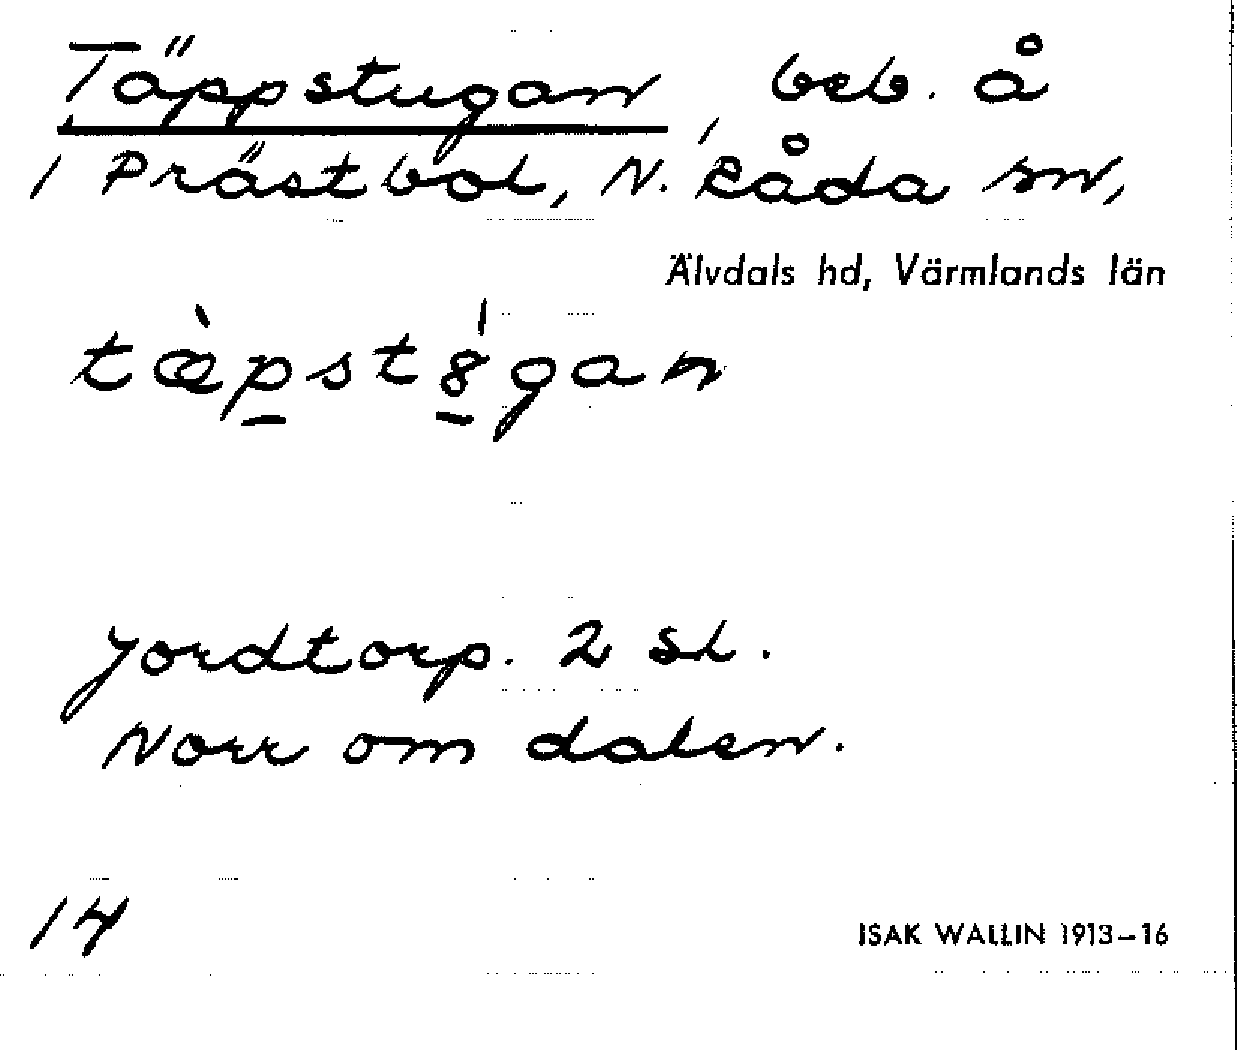 Täppstugan, beb. å
1 Prästbol, N. Råda sn,
Älvdals hd, Värmlands län
tæ̀p̲st8̲́gan
Jordtorp. 2 st.
Norr om dalen.
14
ISAK WALLIN 1913–16